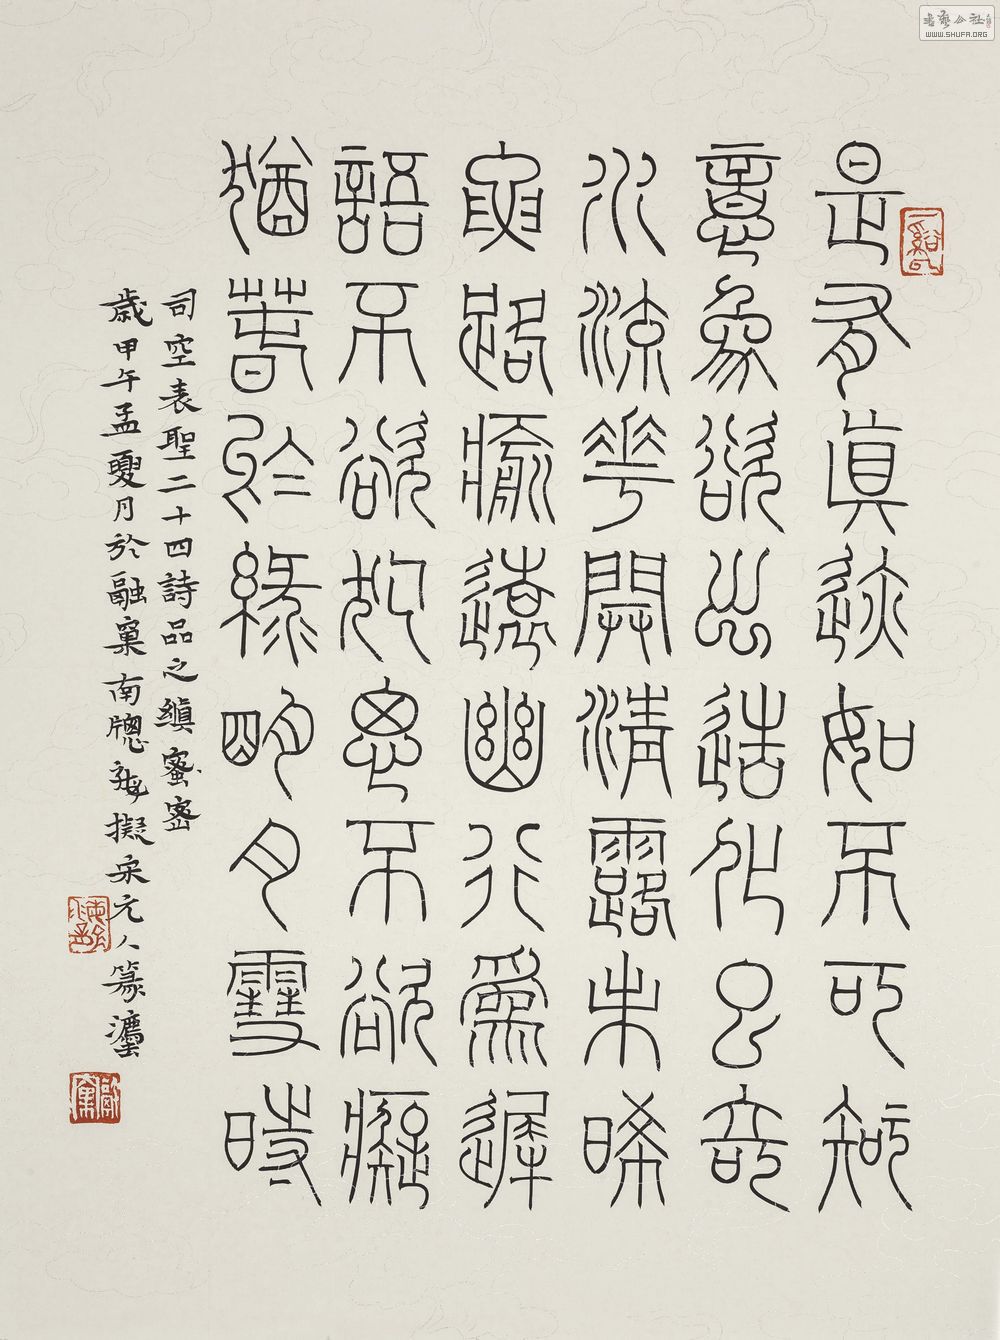 是有眞迹如不可知
意象欲出造化已奇
水流花開清露未晞
要路瘉遠幽行爲遲
語不欲犯思不欲癡
猶春於綠明月雪時
司空表聖二十四詩品之縝蜜密
歲甲午孟夏月於融窠南牕擬宋元人篆灋
書藝公社
WWW.SHUFA.ORG